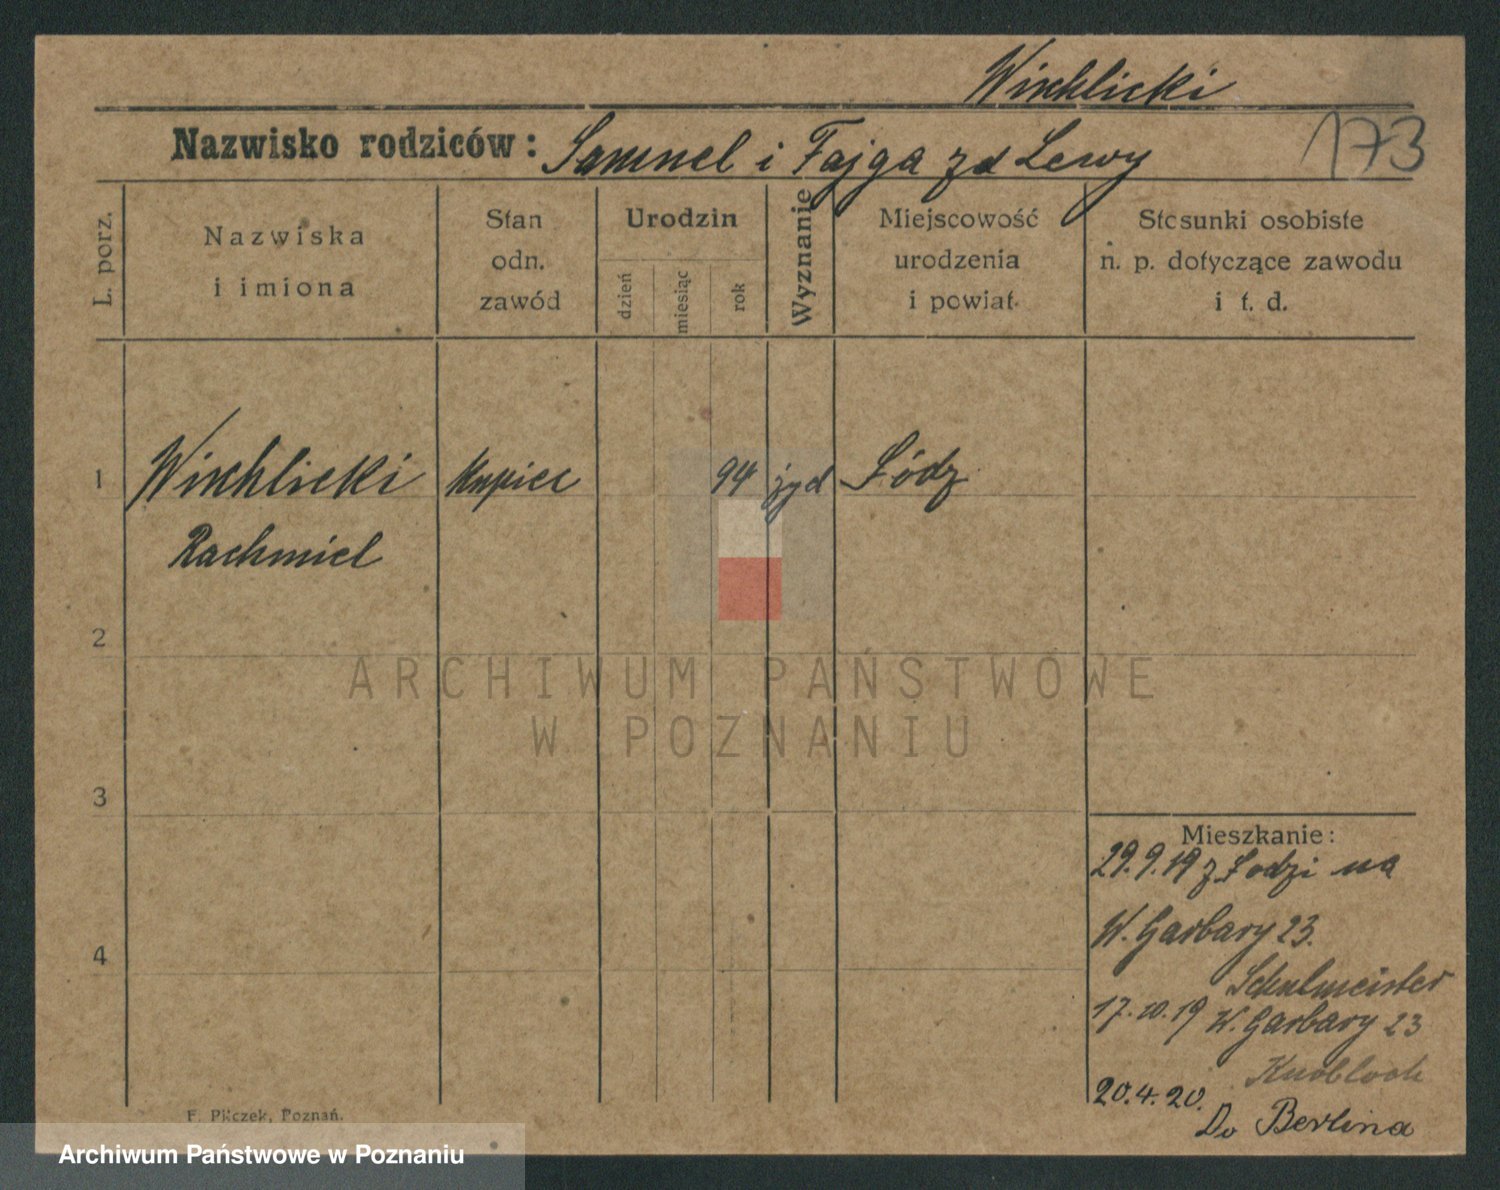 Wirchlicki
Nazwisko rodziców: Samuel i Fajga zd Lewy
173
L. porz.
Nazwiska
i imiona
Stan
odn.
zawód
Urodzin
dzień
miesiąc
rok
Wyznanie
Miejscowość
urodzenia
i powiat
Stosunki osobiste
n. p. dotyczące zawodu
i t. d.
1
Wirchlicki
Rachmiel
Kupiec
94
żyd
Łódz
2
3
4
Mieszkanie:
29.9.19 z Łodzi na
W. Garbary 23.
Schulmeister
17.10.19 W. Garbary 23
Knobloch
20.4.20.
Do Berlina
F. Pliczek, Poznań.
ARCHIWUM PAŃSTWOWE
W POZNANIU
Archiwum Państwowe w Poznaniu